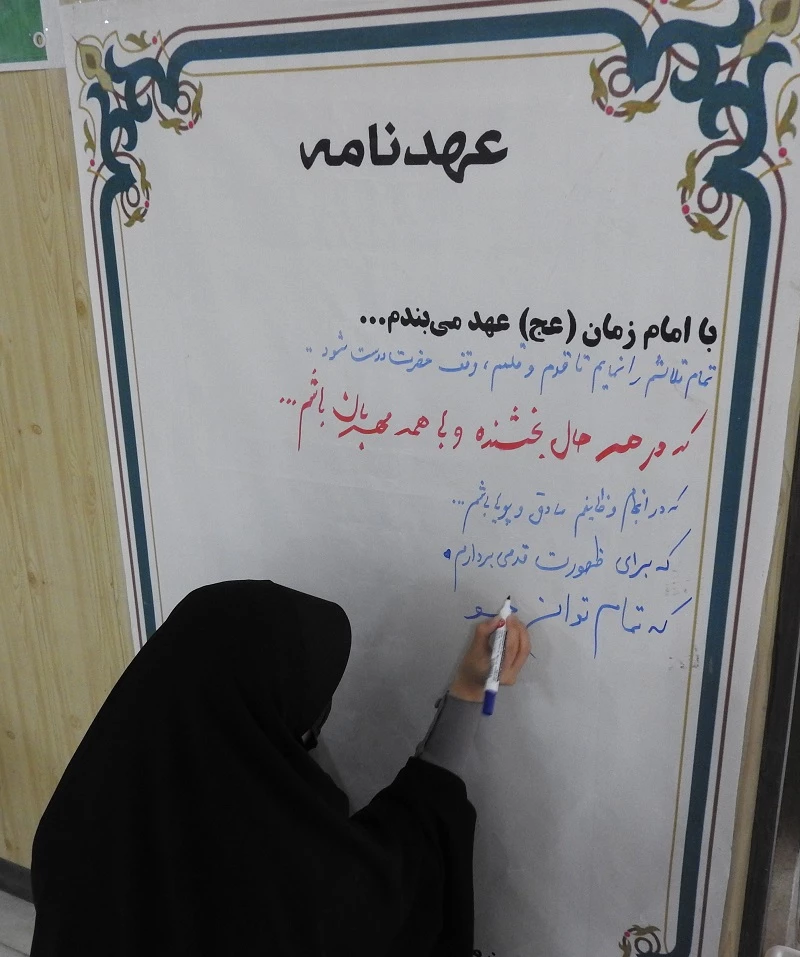 عهدنامه
با امام زمان (عج) عهد می‌بندم...
تمام تلاشم را نمایم تا قدم و قلمم، وقف حضرت دوست شود ..
که در همه حال بخشنده و با همه مهربان باشم...
که در انجام وظایفم صادق و پویا باشم...
که برای ظهورت قدمی بردارم.
که تمام توان